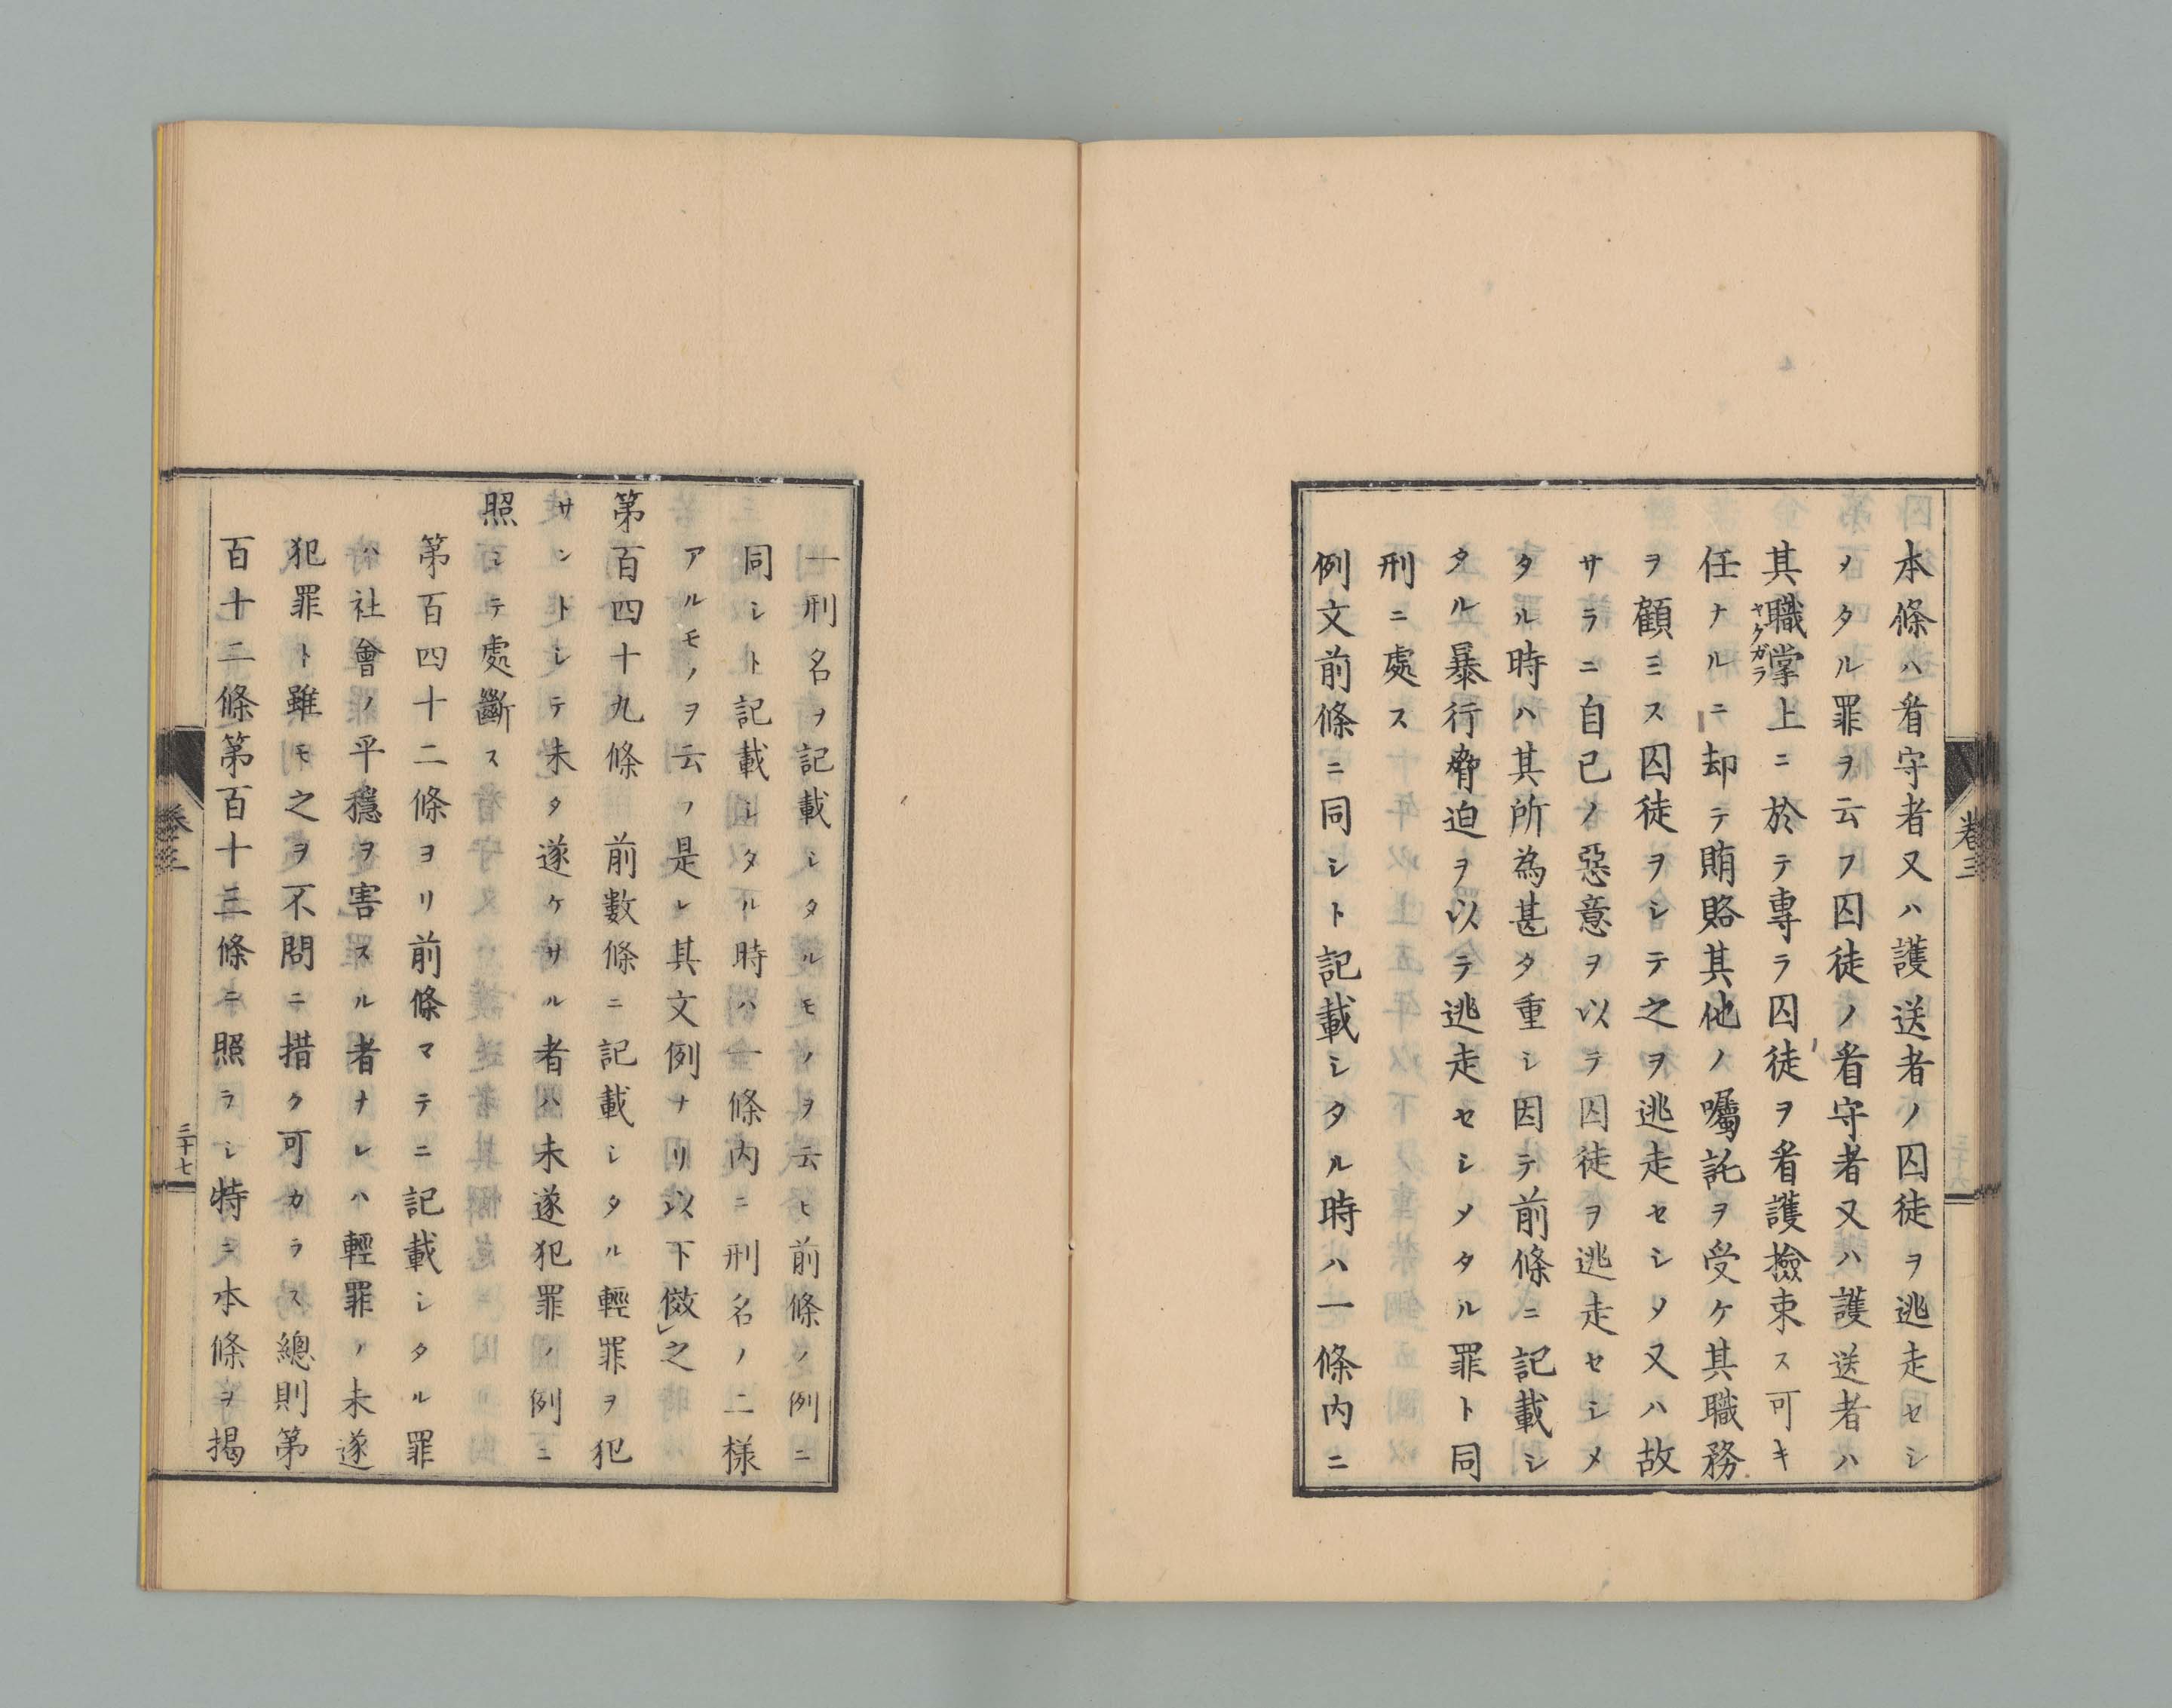 本條ハ看守者又ハ護送者ノ囚徒ヲ逃走セシ
メタル罪ヲ云フ囚徒ノ看守者又ハ護送者ハ
其職掌上ニ於テ専ラ囚徒ヲ看護撿束ス可キ
ヤクガラ
任ナルニ却テ賄賂其他ノ囑託ヲ受ケ其職務
ヲ顧ミス囚徒ヲシテ之ヲ逃走セシメ又ハ故
サラニ自己ノ惡意ヲ以テ囚徒ヲ逃走セシメ
タル時ハ其所為甚タ重シ因テ前條ニ記載シ
タル暴行脅迫ヲ以テ逃走セシメタル罪ト同
刑ニ處ス
例文前條ニ同シト記載シタル時ハ一條内ニ
卷三
一刑名ヲ記載シタルモノヲ云ヒ前條ノ例ニ
同シト記載シタル時ハ一條内ニ刑名ノ二樣
アルモノヲ云フ是レ其文例ナリ以下傚レ之
第百四十九條 前數條ニ記載シタル輕罪ヲ犯
サントシテ未タ遂ケサル者ハ未遂犯罪ノ例ニ
照シテ處斷ス
第百四十二條ヨリ前條マテニ記載シタル罪
ハ社會ノ平穩ヲ害スル者ナレハ輕罪ノ未遂
犯罪ト雖モ之ヲ不問ニ措ク可カラス總則第
百十二條第百十三條ニ照ラシ特ニ本條ヲ揭
卷三
三十七